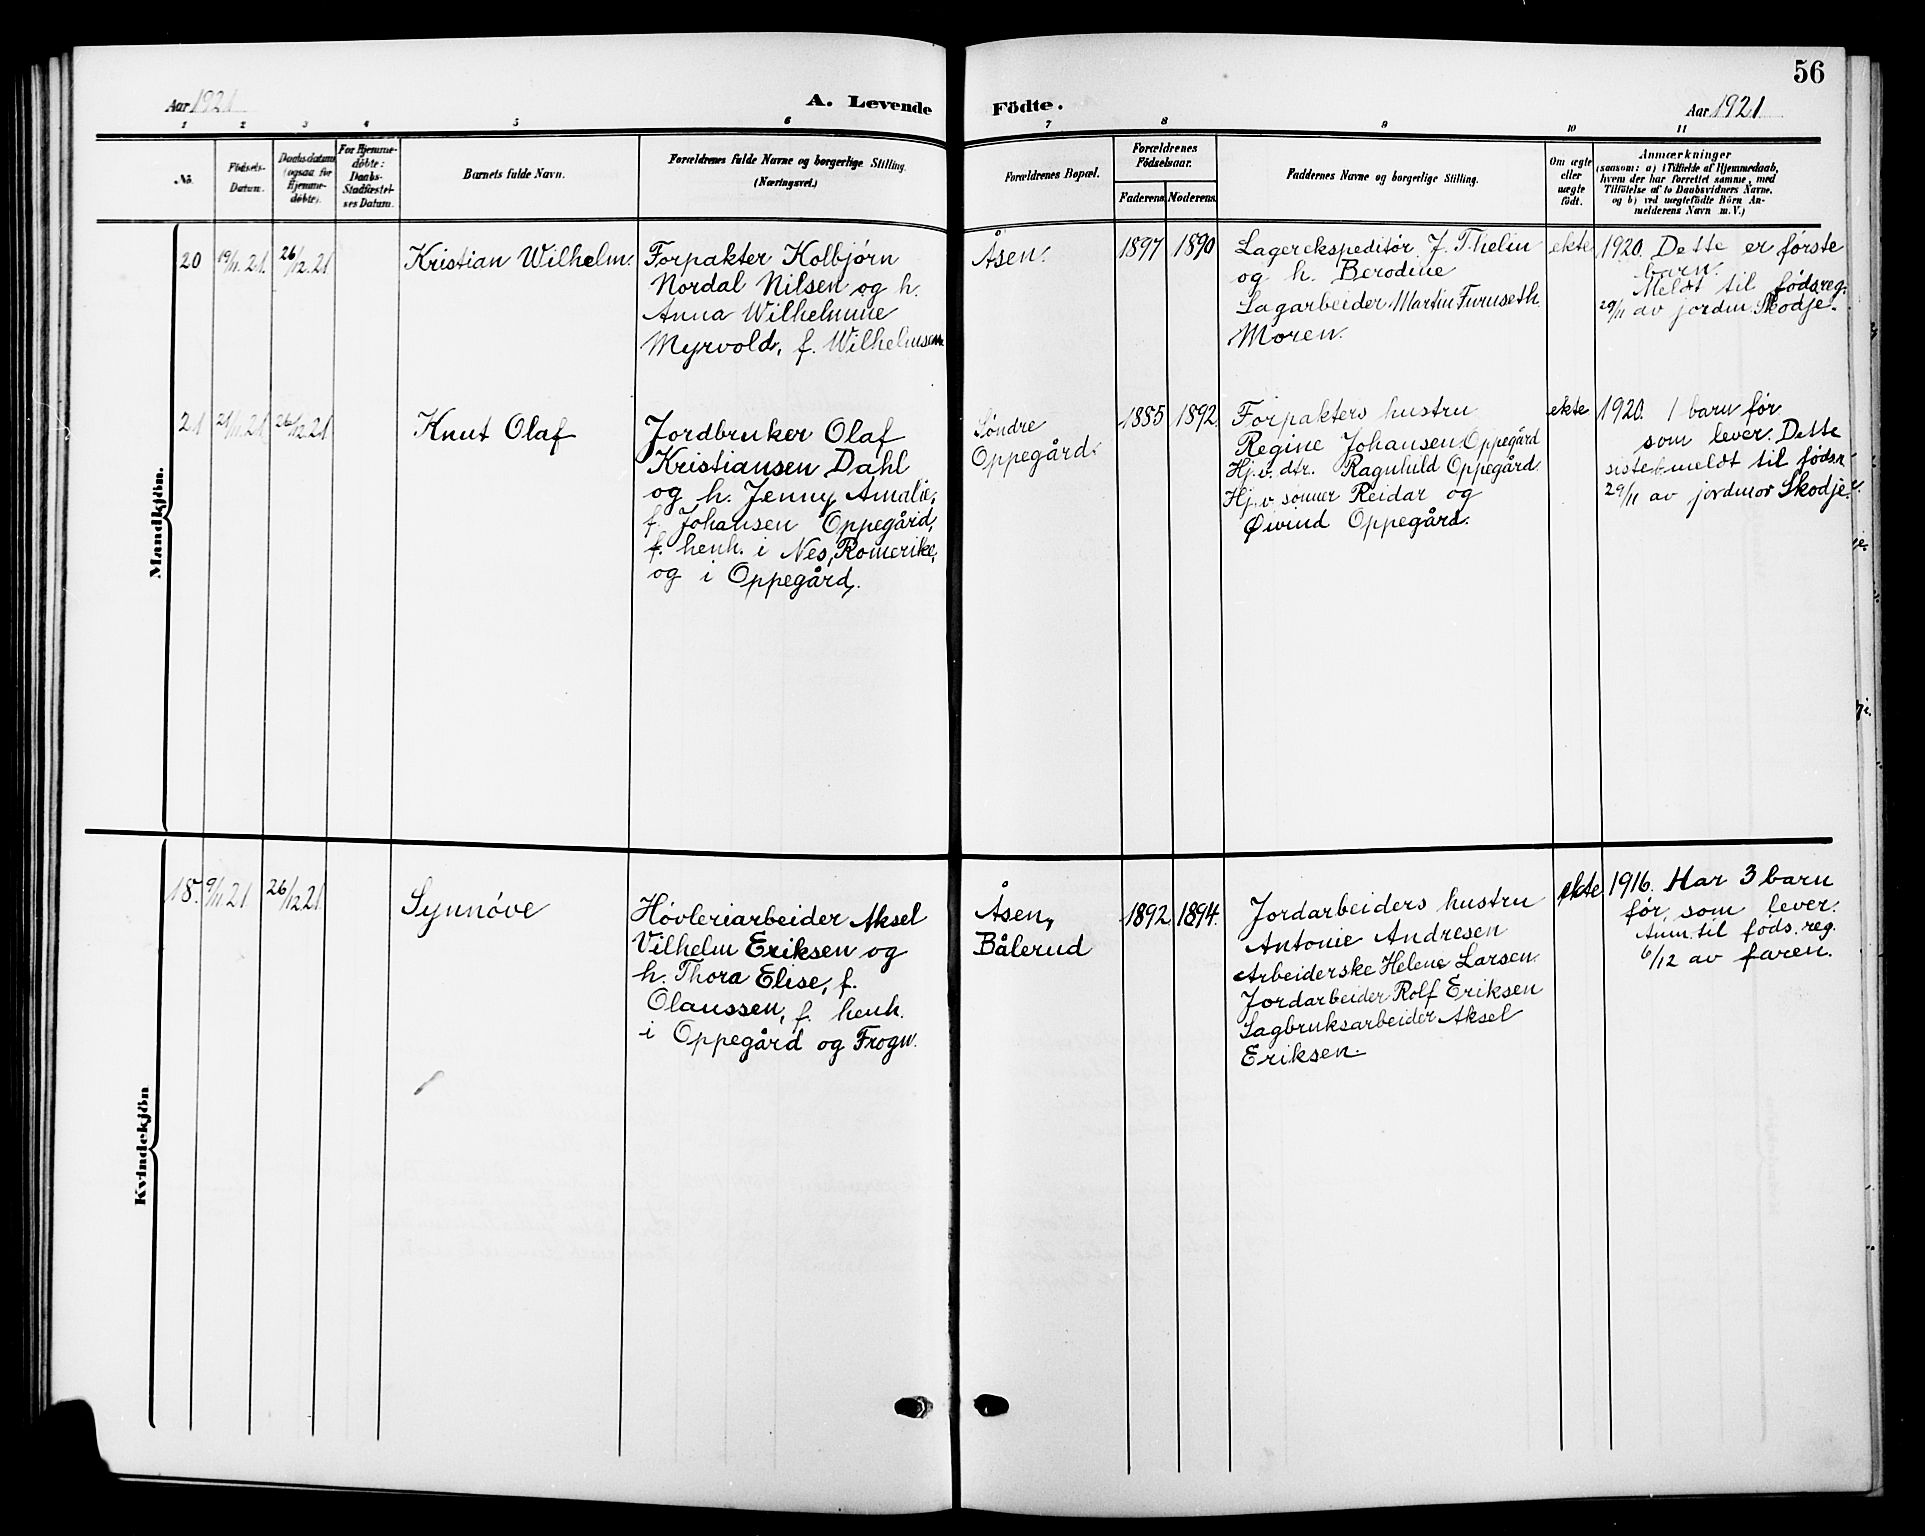 56
Aar 1921
A. Levende Födte.
Aar 1921
1 2 3 4 5 6 7 8 9 10 11
No.
Födsels-
Datum.
Daabsdatum
(ogsaa for
Hjemme-
døbte).
For Hjemme-
döbte:
Daabs-
Stadfæstel-
ses Datum.
Barnets fulde Navn.
Forældrenes fulde Navne og borgerlige Stilling.
(Næringsvei.)
Forældrenes Bopæl.
Forældrenes
Födselsaar.
Faderens Moderens
Faddernes Navne og borgerlige Stilling.
Om ægte
eller
uægte
födt.
Anmærkninger
(saasom: a) i Tilfælde af Hjemmedaab,
hvem der har forrettet samme, med
Tilföielse af to Daabsvidners Navne,
og b) ved uægtefödte Börn An-
melderens Navn m. V.)
Mandkjön.
20
19/11.21.
26/12.21
Kristian Wilhelm.
Forpakter Kolbjørn
Nordal Nilsen og h.
Anna Wilhelmine
Myrvold, f. Wilhelmsen
Åsen.
1897
1890
Lagerekspeditør J. Thelin
og h. Berodine
Lagarbeider Martin Furuseth
Moren.
ekte
1920. Dette er første
barn.
Meldt tilføds.reg.
29/11 av jordm. Skodje.
21
21/11.21
26/12.21
Knut Olaf
Jordbruker Olaf
Kristiansen Dahl
og h. Jenny Amalie,
f. Johansen Oppegård,
f. henh. i Nes, Romerike,
og i Oppegård.
Søndre
Oppegård.
1885
1892
Forpakters hustru
Regine Johansen Oppegård
Hj.v. dtr. Ragnhild Oppegård
Hj.v. sønner Reidar og
Øivind Oppegård.
ekte
1920. 1 barn før
som lever. Dette
siste meldt til føds.r.
29/11 av jordmor Skodje.
Kvindekjön
18.
9/11 21
26/12 21
Synnøve
Høvleriarbeider Aksel
Vilhelm Eriksen og
h. Thora Elise, f.
Olaussen, f. henh.
i Oppegård og Frogn.
Åsen,
Bålerud
1892
1894.
Jordarbeiders hustru
Antonie Andresen
Arbeiderske Helene Larsen.
Jordarbeider Rolf Eriksen
Sagbruksarbeider Aksel
Eriksen.
ekte
1916. Har 3 barn
før, som lever.
Anm. til føds. reg.
6/12 av faren.